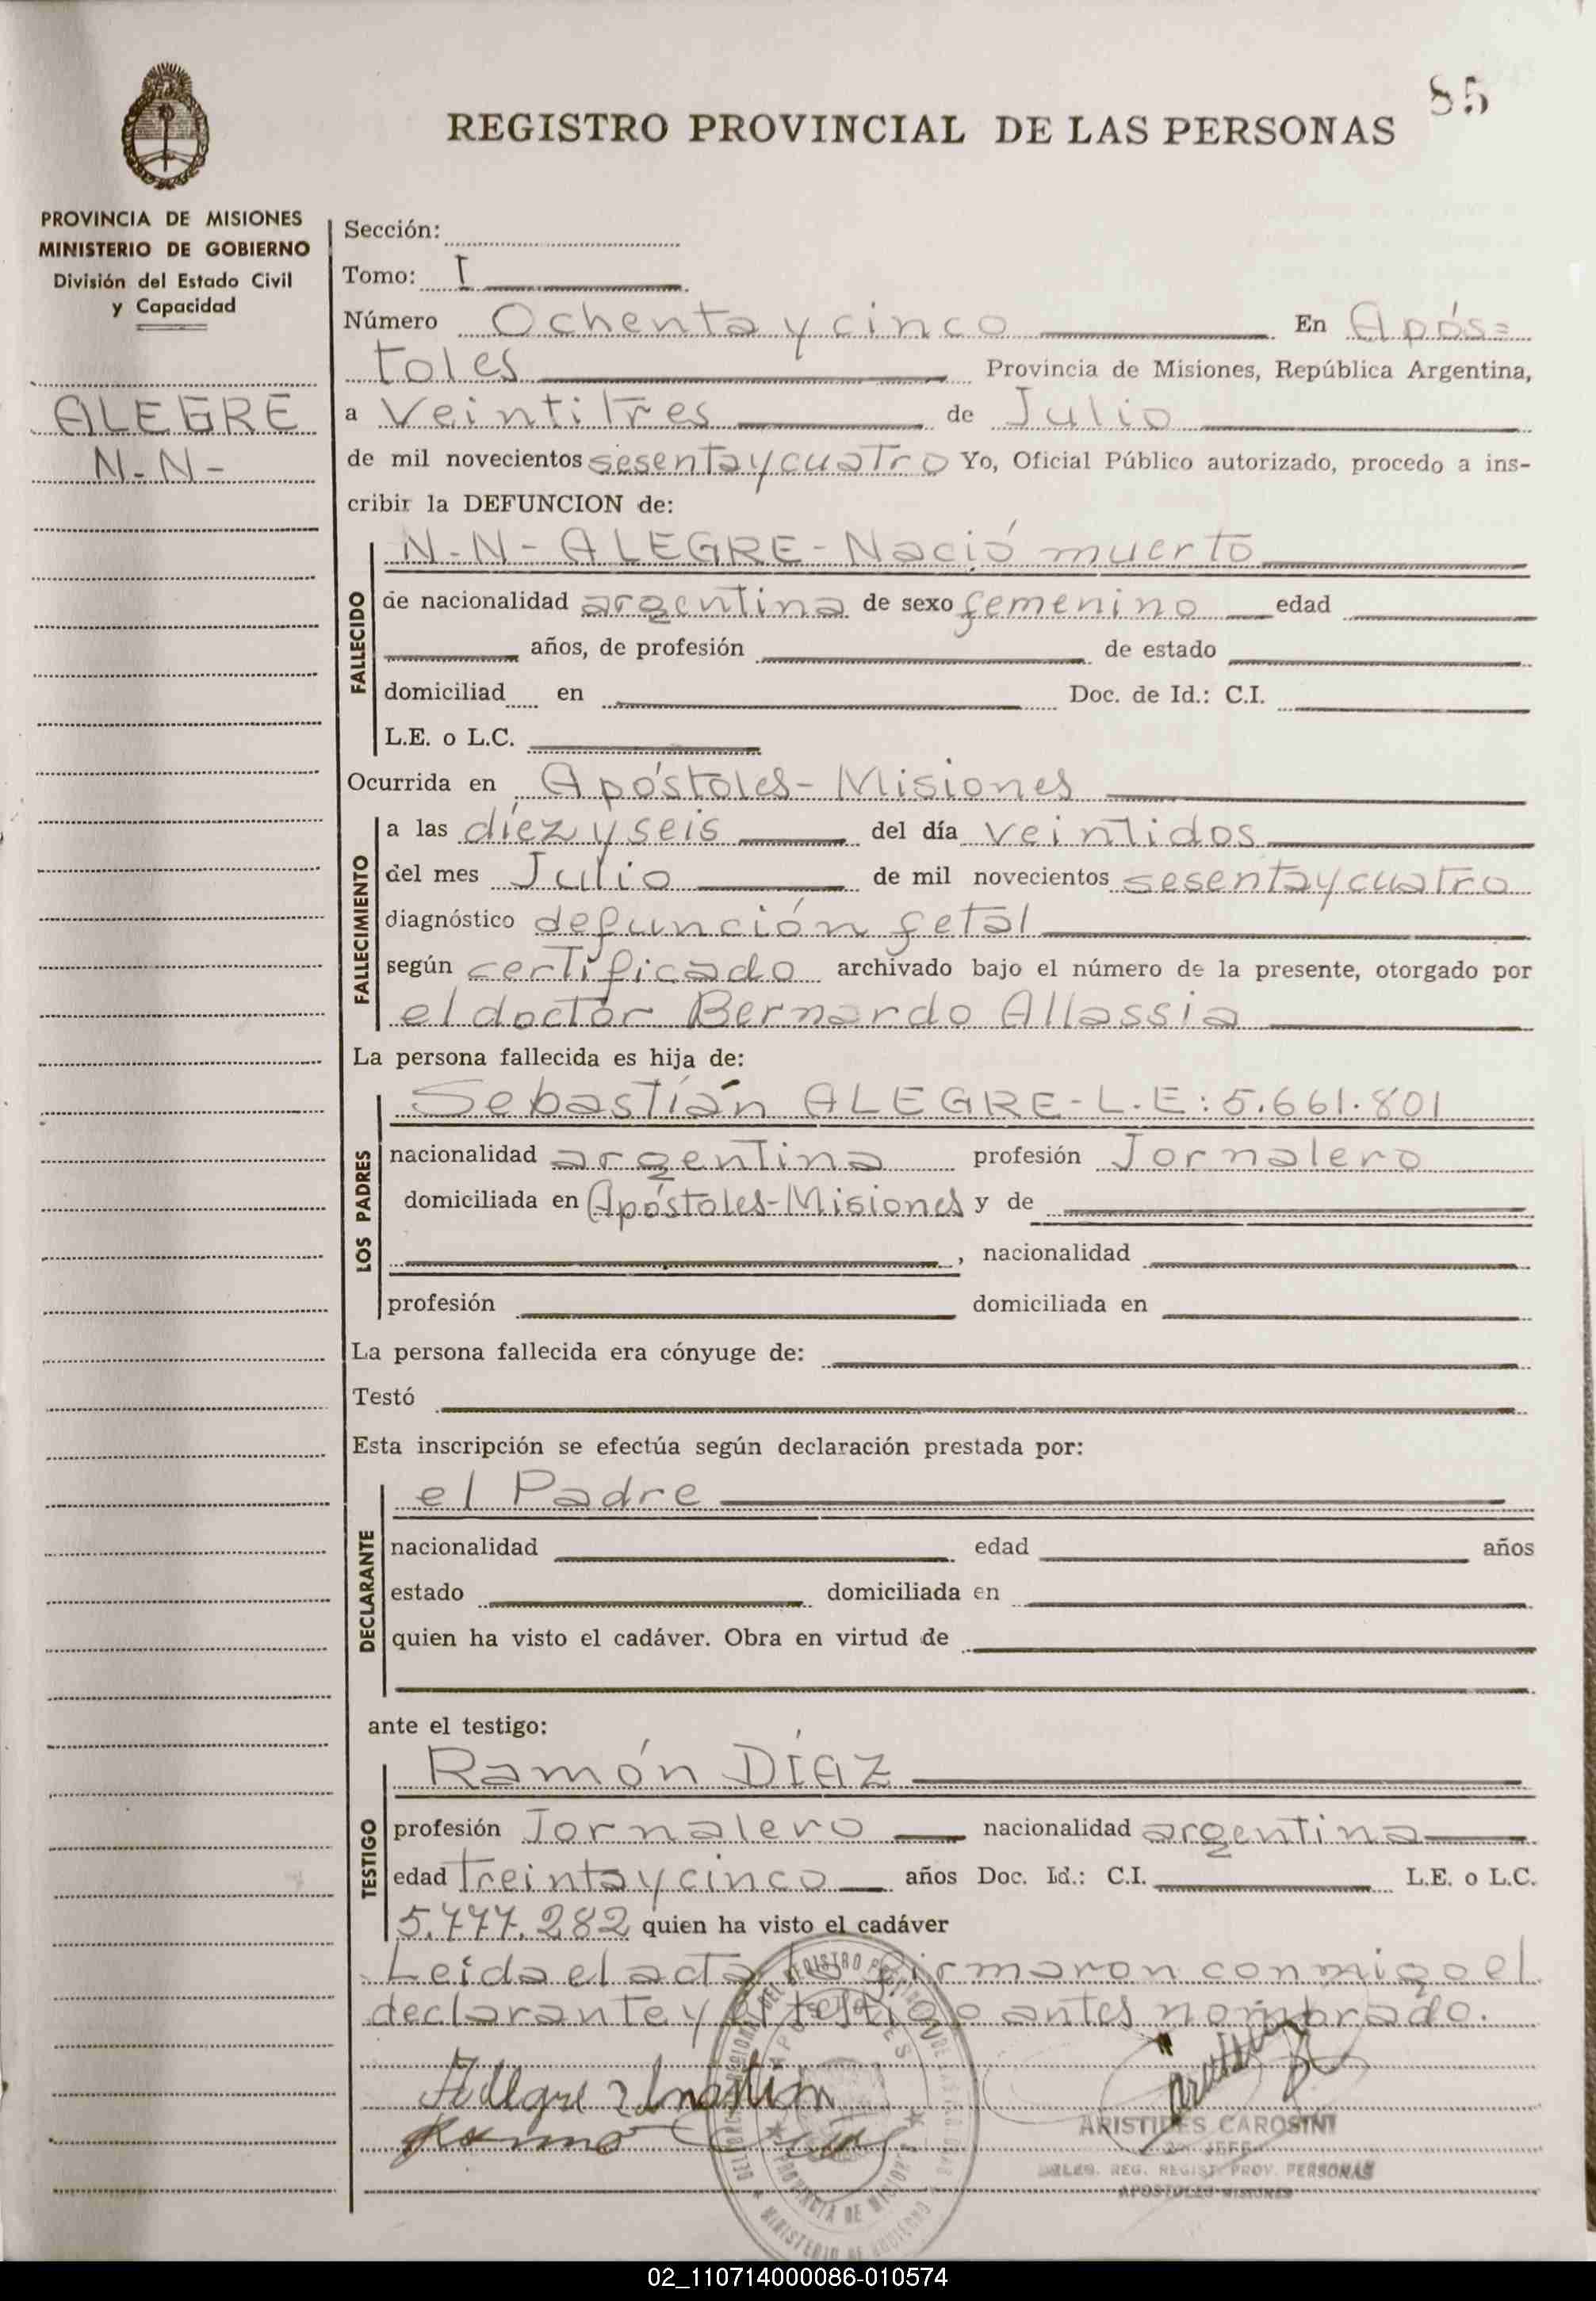 85
REGISTRO PROVINCIAL DE LAS PERSONAS
PROVINCIA DE MISIONES
MINISTERIO DE GOBIERNO
División del Estado Civil
y Capacidad
ALEGRE
N-N-
Sección:
Tomo: I
Número Ochenta y cinco En Após=
toles Provincia de Misiones, República Argentina,
a Veintitres de Julio
de mil novecientos sesenta y cuatro Yo, Oficial Público autorizado, procedo a ins-
cribir la DEFUNCION de:
FALLECIDO
N-N- ALEGRE- Nació muerto
de nacionalidad argentina de sexo femenino edad
años, de profesión de estado
domiciliad en Doc. de Id.: C.I.
L.E. o L.C.
Ocurrida en Apóstoles- Misiones
FALLECIMIENTO
a las díez y seis del día veintidos
del mes Julio de mil novecientos sesenta y cuatro
diagnóstico defunción fetal
según certificado archivado bajo el número de la presente, otorgado por
el doctor Bernardo Allassia
La persona fallecida es hija de:
LOS PADRES
Sebastián ALEGRE- L.E: 5.661.801
nacionalidad argentina profesión Jornalero
domiciliada en Apóstoles-Misiones y de
, nacionalidad
profesión domiciliada en
La persona fallecida era cónyuge de:
Testó
Esta inscripción se efectúa según declaración prestada por:
DECLARANTE
el Padre
nacionalidad edad años
estado domiciliada en
quien ha visto el cadáver. Obra en virtud de
ante el testigo:
TESTIGO
Ramón DÍAZ
profesión Jornalero nacionalidad argentina
edad treinta y cinco años Doc. Id.: C.I. L.E. o L.C.
5.777.282 quien ha visto el cadáver
Leída el acta, la firmaron conmigo el
declarante y el testigo antes nombrado.
ARISTIDES CAROSINI
JEFE
DELEG. REG. REGIST. PROV. PERSONAS
APOSTOLES MISIONES
APOSTOLES
PROVINCIA DE MISIONES
02_110714000086-010574